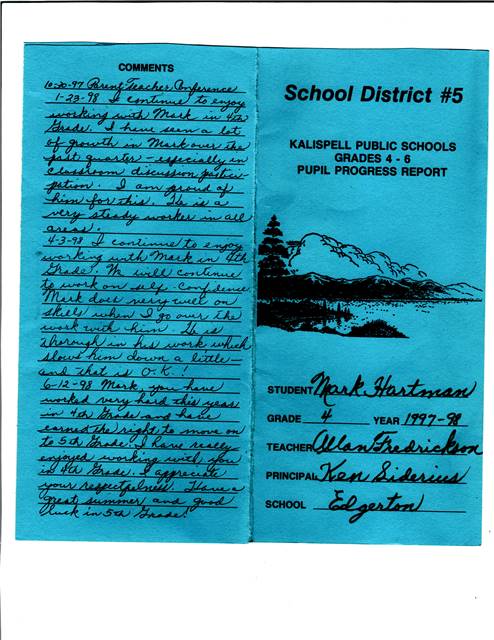 COMMENTS
10-30-97 Parent Teacher Conference
1-23-98 I continue to enjoy
working with Mark in 4th
Grade. I have seen a lot
of growth in Mark over the
past quarter - especially in
classroom discussion partici-
pation. I am proud of
him for this. He is a
very steady worker in all
areas.
4-3-98 I continue to enjoy
working with Mark in 4th
Grade. We will continue
to work on self-confidence.
Mark does very well on
skills when I go over the
work with him. He is
thorough in his work which
slows him down a little -
and that is O.K.!
6-12-98 Mark, you have
worked very hard this year
in 4th Grade and have
earned the right to move on
to 5th Grade. I have really
enjoyed working with you
in 4th Grade. I appreciate
your respectfulness. Have a
great summer and good
luck in 5th Grade!
School District #5
KALISPELL PUBLIC SCHOOLS
GRADES 4 - 6
PUPIL PROGRESS REPORT
STUDENT Mark Hartman
GRADE 4 YEAR 1997-98
TEACHER Allan Fredrickson
PRINCIPAL Ken Siderius
SCHOOL Edgerton